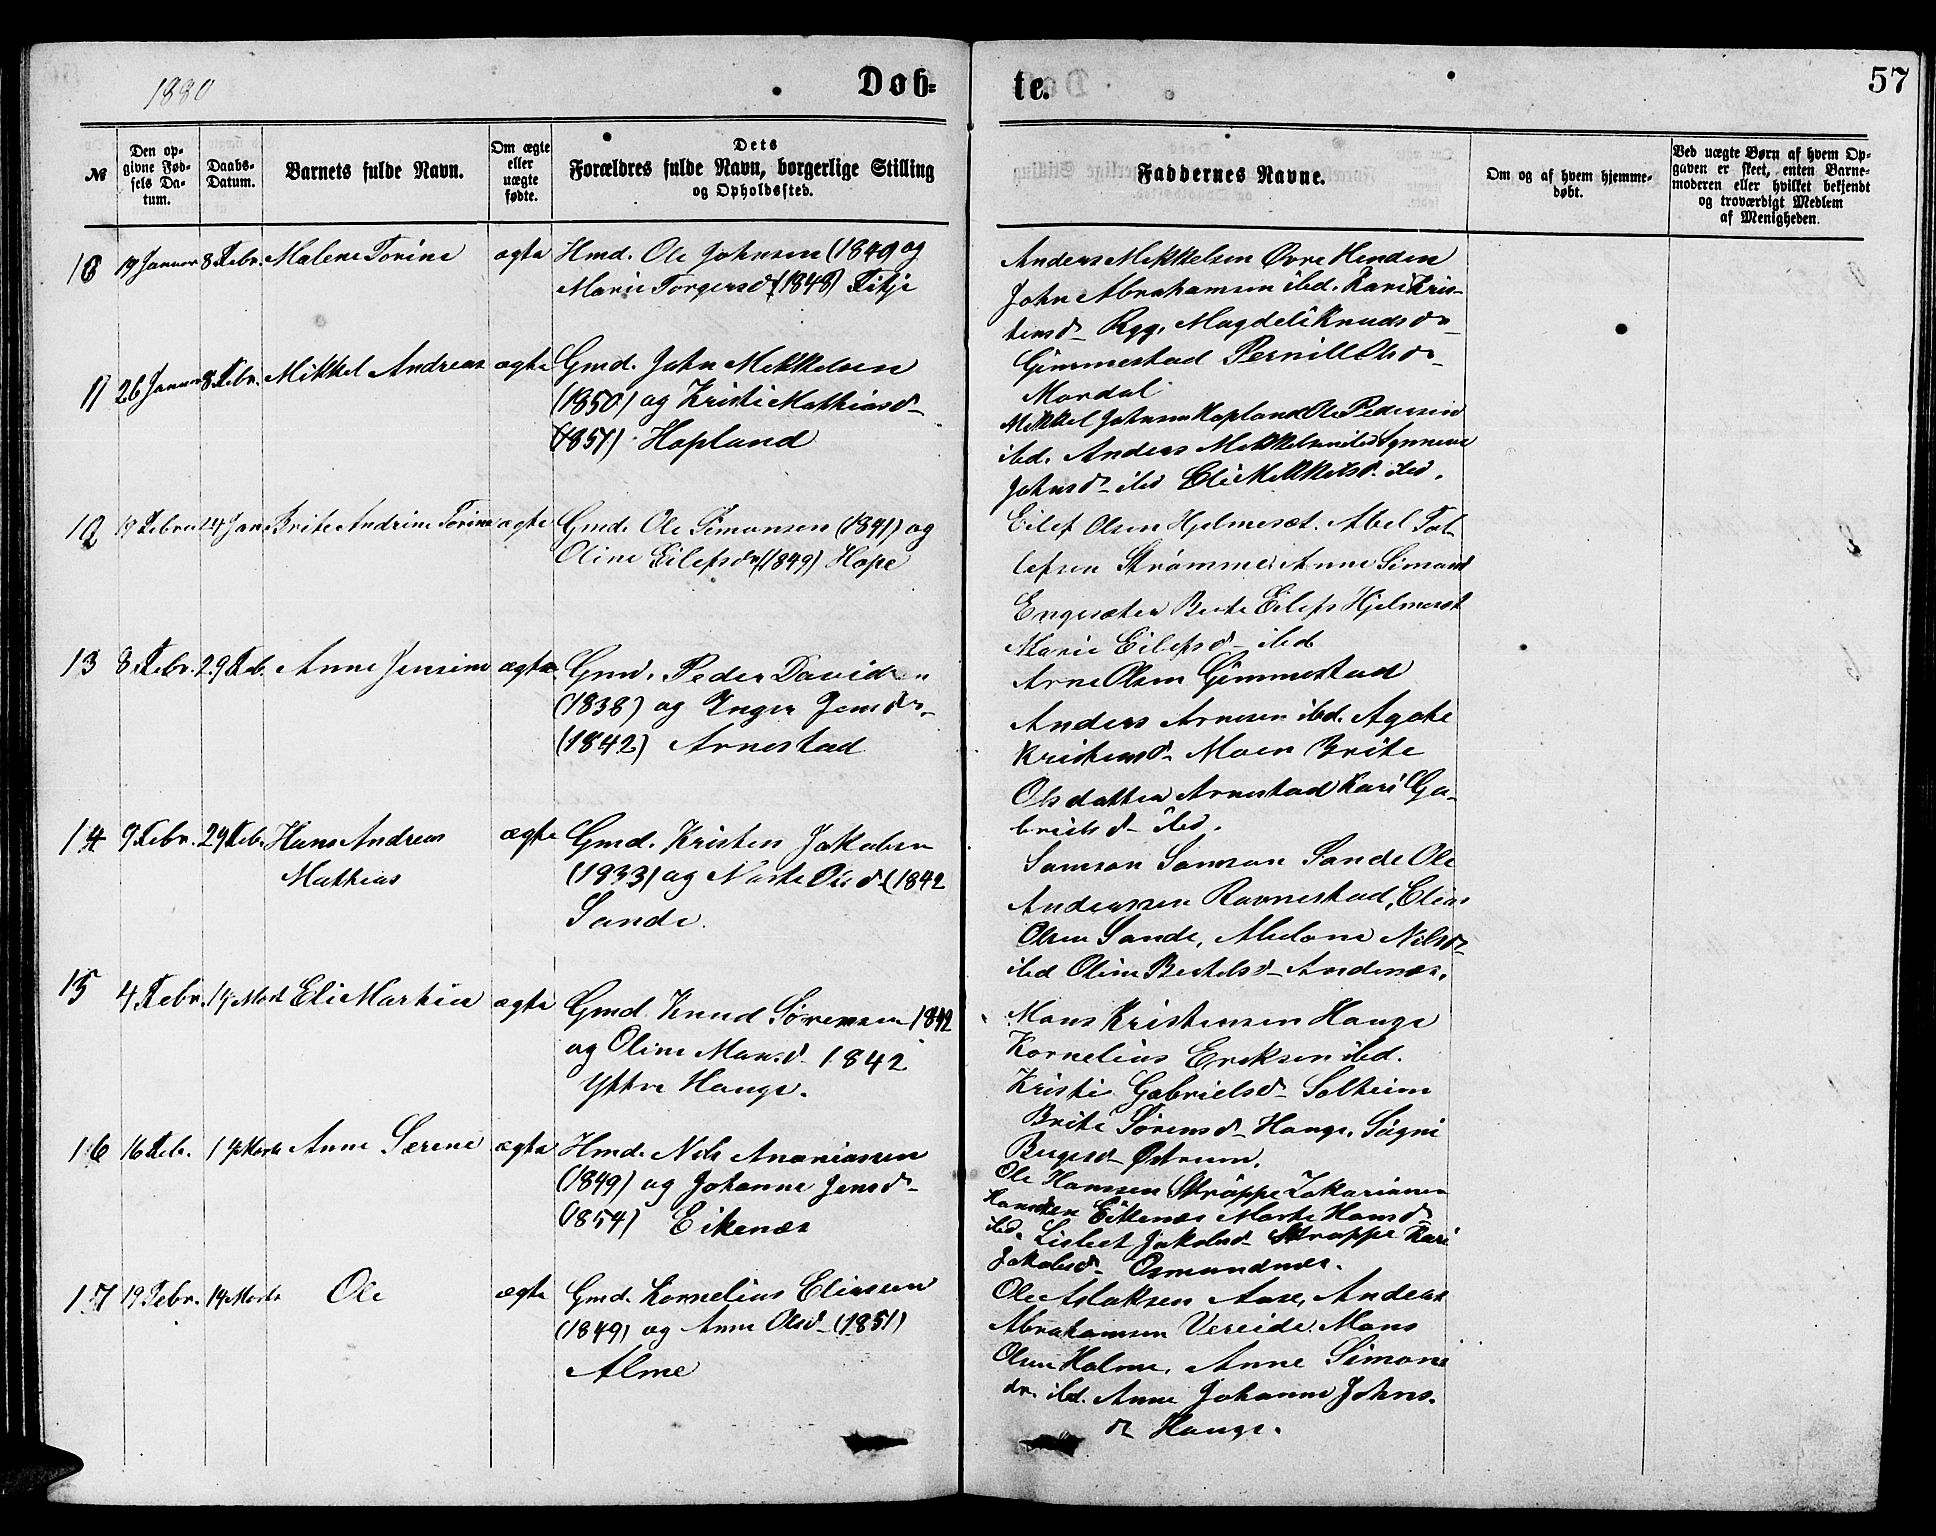 1880
Døb-
te.
57
№
Den op-
givne Fød-
sels Da-
tum.
Daabs-
Datum.
Barnets fulde Navn.
Om ægte
eller
uægte
fødte.
Dets
Forældres fulde Navn, borgerlige Stilling
og Opholdssted.
Faddernes Navne.
Om og af hvem hjemme-
døbt.
Ved uægte Børn af hvem Op-
gaven er skeet, enten Barne-
moderen eller hvilket bekjendt
og troværdigt Medlem
af Menigheden.
10 19 Januar 8 Febr. Malene Torine ægte
Hmd. Ole Johnsen (1849 og
Marie Torgersdr (1848) Fitje
Anders Mikkelsen Øvre Henden
John Abrahamsen ibd. Kari Kris-
tensdr Ryg, Magdeli Knudsdr
Gimmestad Pernill Olsdr
Mardal
11 26 Januar 8 Febr. Mikkel Andreas ægte
Gmd. John Mikkelsen
(1850) og Kristi Mathiasdr
(1857) Hopland
Mikkel Johnsen Hopland Ole Pedersen
ibd. Anders Mikkelsen ibd Synneve
Johnsdr ibd Eli Mikkelsdr ibd.
12 Febru 24 Jan Brite Andrine Torine ægte
Gmd. Ole Simonsen (1841) og
Oline Eilefsdr (1849) Hope
Eilef Olsen Hjelmeset. Abel Tol-
lefsen Strømme, Anne Simonsd
Engesæter Berte Eilefs Hjelmeset
Marie Eilefsdr ibd
13 8 Febr. 29 Feb. Anne Jensine ægte
Gmd. Peder Davidsen
(1838) og Inger Jensdr
(1842) Arnestad
Arne Olsen Gimmestad
Anders Arnesen ibd. Agote
Kristensdr Moen Brite
Olsdatter Arnestad Kari Ga-
brielsdr ibd.
14 9 Febr. 29 Feb. Hans Andreas
Mathias
ægte
Gmd. Kristen Jakobsen
(1833) og Marte Olsdr (1842
Sande.
Samson Samson Sande Ole
Anderssen Ravnestad, Elias
Olsen Sande, Abelone Nilsdr
ibd Oline Bertelsdr Andenæs.
15 4 Febr. 14 Mart Eli Martine ægte
Gmd. Knud Sørensen 1842
og Oline Mansdr 1842
Yttre Hauge.
Mons Kristensen Hauge
Kornelius Eriksen ibd.
Kristi Gabrielsdr Solheim
Brite Sørensdr Hauge. Signi
Østrum.
16 16 Feb. 14 Marts Anne Serene ægte
Hmd. Nils Ananiassen
(1849) og Johanne Jensdr
(1854) Eikenæs
Ole Hanssen Strappe Zakarias
Hanssen Eikenæs Marte Hansdr
ibd. Lisbet Jakobsdr Strappe Kari
Jakobsdr Osmundnæs.
17 19 Febr. 14 Marts Ole ægte
Gmd. Kornelius Eliassen
(1849) og Anne Olsdr (1851)
Alme
Ole Aslaksen Aase, Andreas
Abrahamsen Vereide. Mons
Olsen Holme, Anne Simons
dr. ibd. Anne Johanne Johns.
dr Hauge.